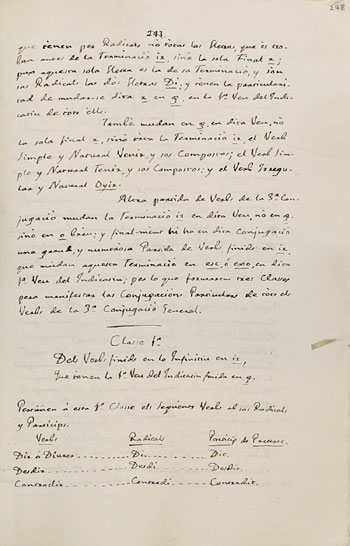 248
243
que tenen per Radicals, no totas las lletras, que es tro-
ban antes de la Terminació ix, sinó la sola Final x;
puix aquesta sola lletra es la de sa Terminació, y son
sas Radicals las dos lletras Di; y tenen la particulari-
tat de mudarse dita x en q, en la 1ª Veu del Indi-
catiu de tots ells.
També mudan en q, en dita Veu, no
la sola final x, sinó tota la Terminació ix, el Verb
Simple y Natural Venix, y sos Compostos; el Verb Sim-
ple y Natural Tenix, y sos Compostos; y el Verb Irregu-
lar y Natural Oyix.
Altra partida de Verbs de la 3ª Con-
jugació mudan la Terminació ix en dita Veu, no en q,
sinó en o breu; y, final-ment hi ha en dita Conjugació
una grande, y numerosa Partida de Verbs finids en ix,
que mudan aquesta Terminació en esc, ó exo, en dita
1ª Veu del Indicatiu; per lo que formarem tres Classes
pera manifestar las Conjugacions Particulars de tots els
Verbs de la 3ª Conjugació General.
Classe 1ª
Dels Verbs finids en lo Infinitiu en ix,
que tenen la 1ª Veu del Indicatiu finida en q.
Pertañen á esta 1ª Classe els següents Verbs ab sos Radicals
y Participis.
Verbs Radicals Participi de Preterit.
Dix ó Diurer Di Dit.
Desdix Desdi Desdit.
Contradix Contradi Contradit.